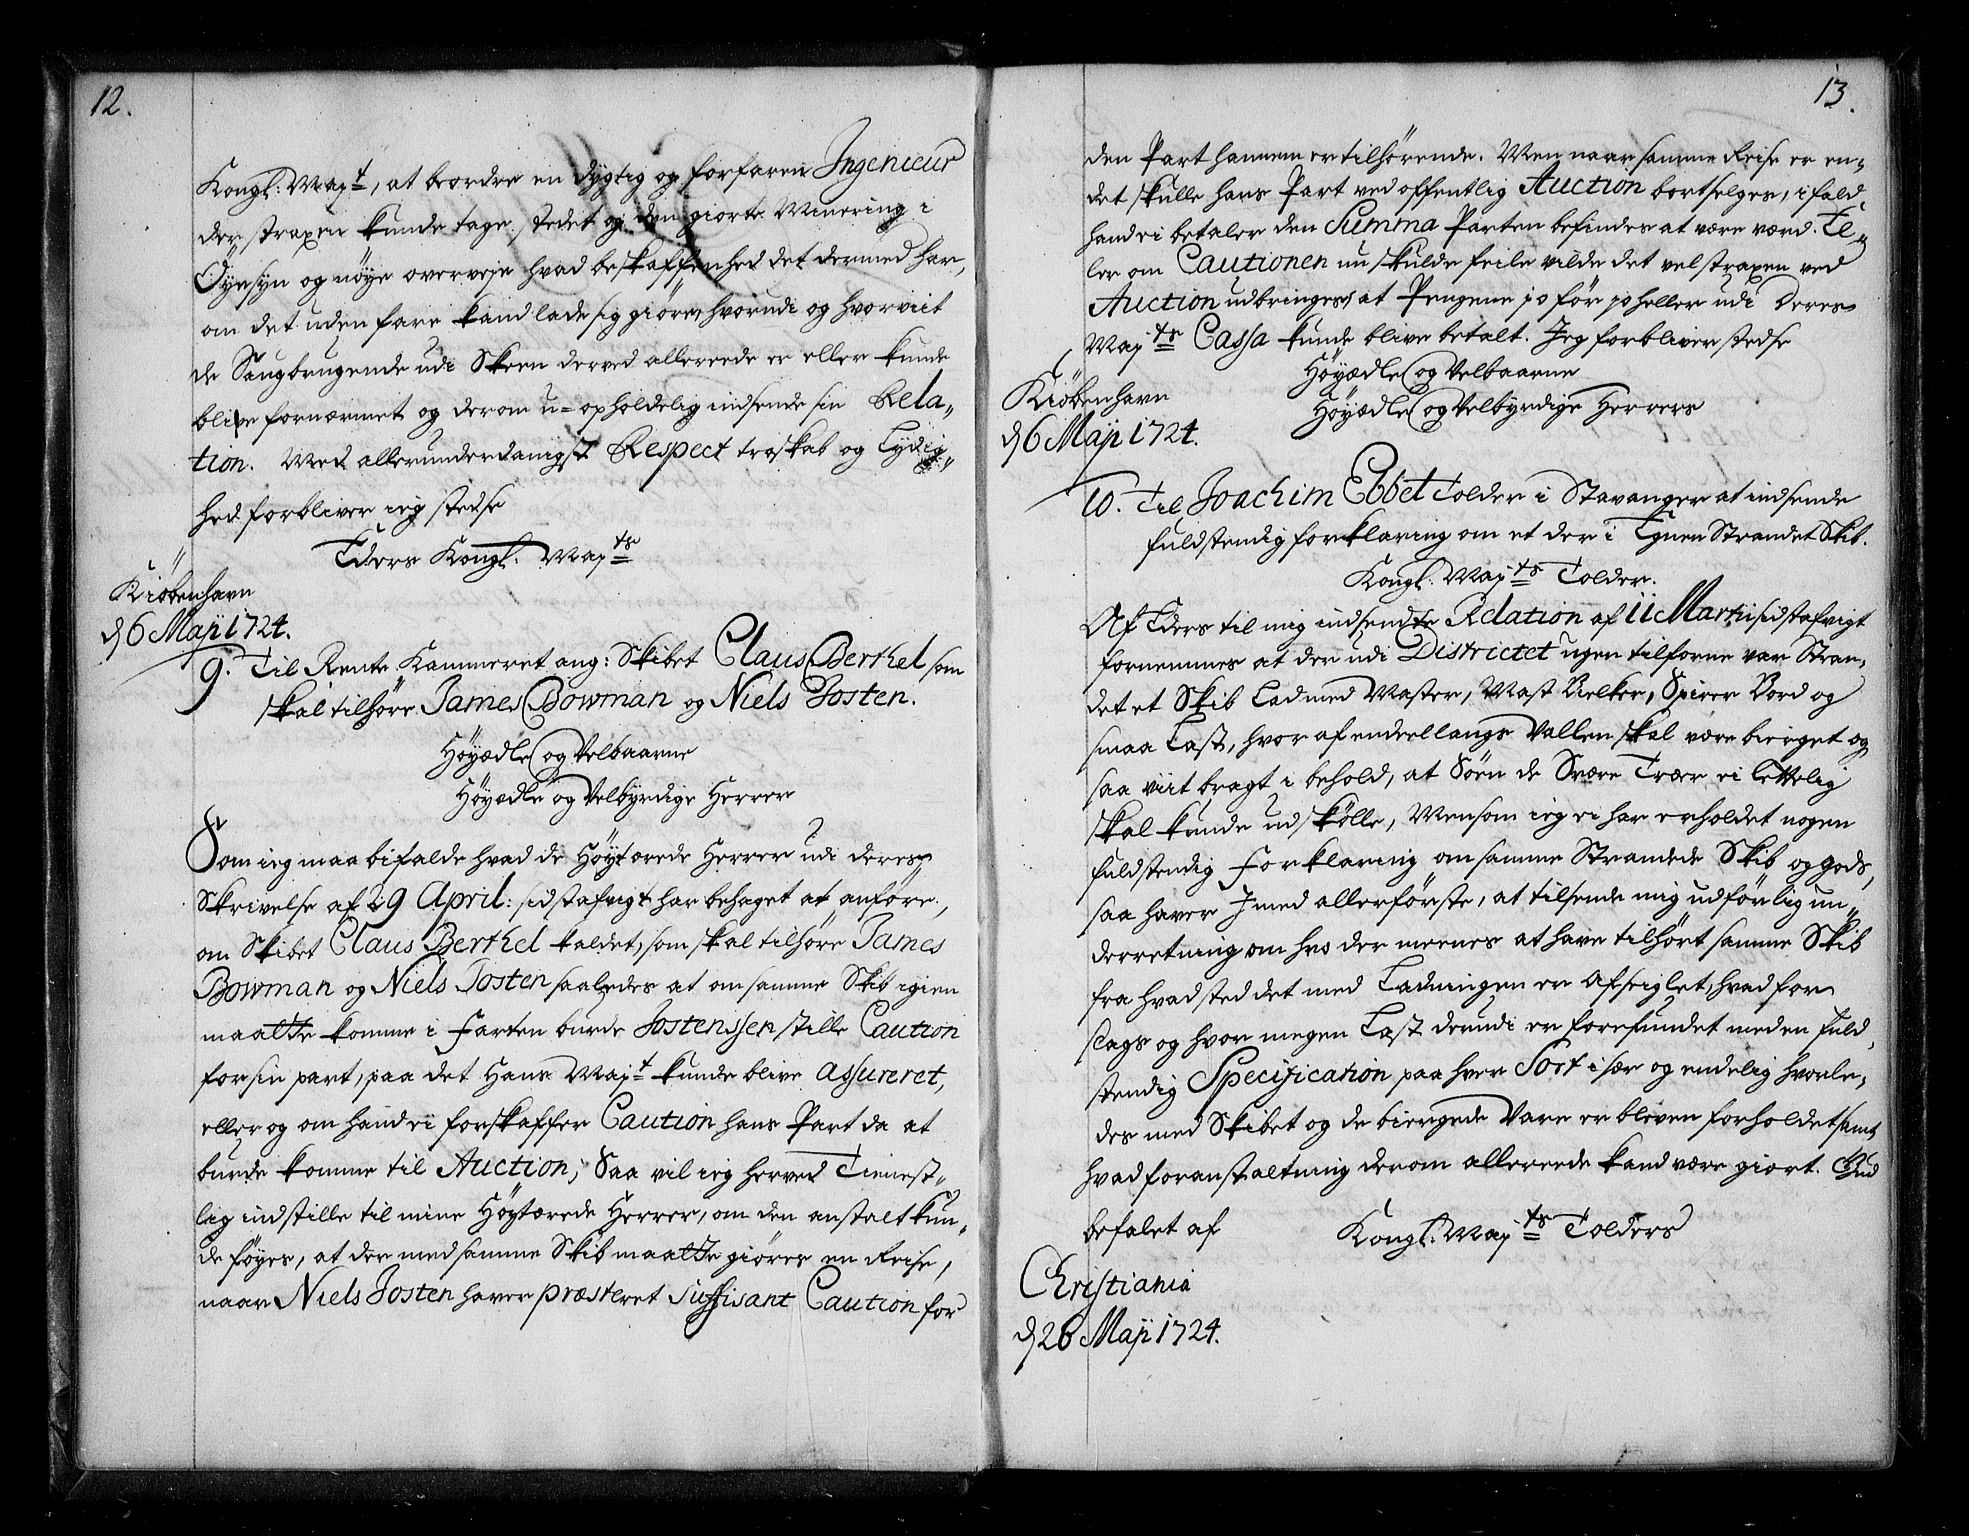 12.
Kongl: Mayt, at beordre en dygtig og forfaren Ingenieur
der straxen kunde tage stedet og den giorte Minering i
Øyesyn og nøye overveje hvad beskaffenhed det dermed har,
om det uden fare kand lade sig giøre, hvorudi og hvorviit
de Saugbrugende udi Skeen derved allereede er eller kunde
blive fornærmet og derom u-opholdelig indsende sin Rela„
tion. Med allerunderdanigst Respect troskab og Lydig„
hed forbliver ieg stedse
Eders Kongl. Mayts
Kiøbenhavn
d 6 Maji 1724.
9. Til Rente Kammeret ang: Skibet Claus Berthel som
skal tilhøre James Bowman og Niels Josten.
Høyædle og Velbaarne
Høyædle og Velbyrdige Herrer
Som ieg maa bifalde hvad de Høytærede Herrer udi deres
Skrivelse af 29 April: sidstafvigt har behaget at anføre,
om Skibet Claus Berthel kaldet, som skal tilhøre James
Bowman og Niels Josten saaledes at om samme Skib igien
maatte komme i Farten burde Jostenssen stille Caution
for sin part, paa det Hans Mayt kunde blive Assureret,
eller og om hand ei forskaffer Caution hans Part da at
burde komme til Auction; Saa vil ieg herved Tienest„
lig indstille til mine Høytærede Herrer, om den anstalt kun„
de føyes, at der med samme Skib maatte giøres en Reise,
naar Niels Josten haver præsteret Suffisant Caution for
13.
den Part hannem er tilhørende. Men naar samme Reise er en„
det skulle hans Part ved offentlig Auction bortselges, ifald
hand ei betaler den Summa Parten befindes at være værd. El„
ler om Cautionen nu skulde feile vilde det vel straxen ved
Auction udbringes at Pengene jo før jo heller udi Deres
Mayts Cassa kunde blive betalt. Jeg forbliver stedse
Høyædle og Velbaarne
Høyædle og Velbyrdige Herrers
Kiøbenhavn
d 6 Maji 1724.
10. Til Joachim Ebbet Tolder i Stavanger at indsende
fuldstendig forklaring om et der i Egnen Strandet Skib.
Kongl. Mayts Tolder.
Af Eders til mig indsendte Relation af 11 Martii sidstafvigt
fornemmes at der udi Districtet ugen tilforne var Stran„
det et Skib Lad med Master, Mast Bielker, Spirer Bord og
smaa Last, hvor af endeel langs Vallen skal være bierget og
saa viit bragt i behold, at Søen de Svære Træer ei lettelig
skal kunde udskølle, Men som ieg ei har erholdet nogen
fuldstendig Forklaring om samme Strandede Skib og gods,
saa haver I med allerførste, at tilsende mig udførlig un„
derretning om hvo der meenes at have tilhørt samme Skib
fra hvad sted det med Ladningen er Afseiglet, hvad for
slags og hvor megen Last derudi er forefundet med en fuld„
stendig Specification paa hver Sort i sær og endelig hvorle„
des med Skibet og de biergede Vare er bleven forholdet samt
hvad foranstaltning derom allereede kand være giort. Gud
befalet af
Kongl: Mayts Tolders
Christiania
d 26 Maji 1724.